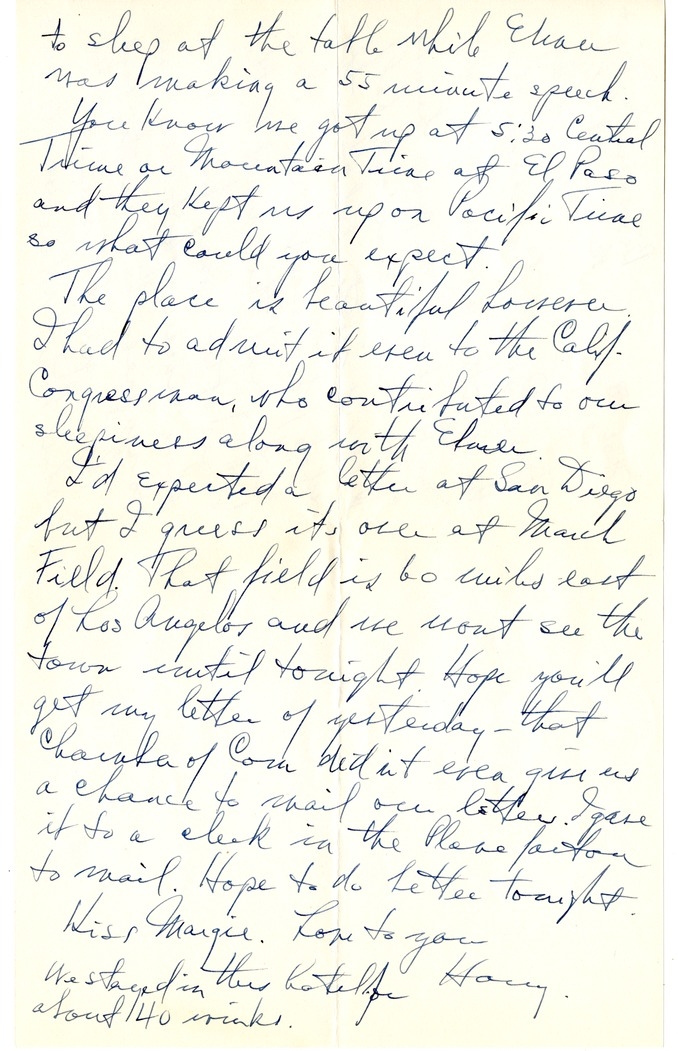 to sleep at the table while Elmer
was making a 55 minute speech.
You know we got up at 5:30 Central
Time or Mountain Time at El Paso
and they kept us up on Pacific Time
so what could you expect.
The place is beautiful however.
I had to admit it even to the Calif.
Congressman, who contributed to our
sleepiness along with Elmer.
I'd expected a letter at San Diego
but I guess its over at March
Field. That field is 60 miles east
of Los Angelos and we wont see the
town until tonight. Hope you'll
get my letter of yesterday - that
Chamber of Com didn't even give us
a chance to mail our letters. I gave
it to a clerk in the Plane factory
to mail. Hope to do better tonight.
Kiss Margie. Love to you
Harry.
We stayed in this hotel for
about 40 winks.